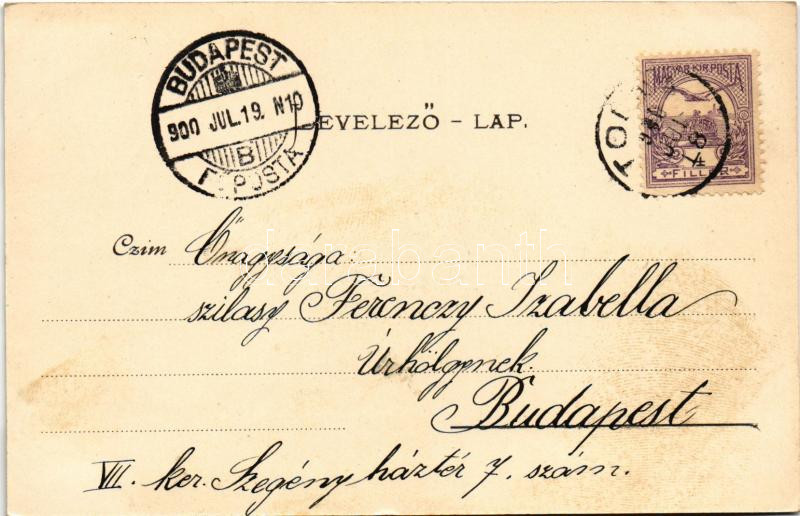 BUDAPEST
900 JUL.19. N10
B
FŐPOSTA
LEVELEZŐ - LAP.
MAGYAR KIR. POSTA
4
FILLÉR
Czim Őnagysága:
szilasy Ferenczy Izabella
Úrhölgynek.
Budapest
VII. ker. Szegényháztér 7. szám.